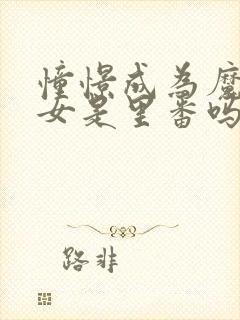 憧憬成为魔
女是里番吗
路非